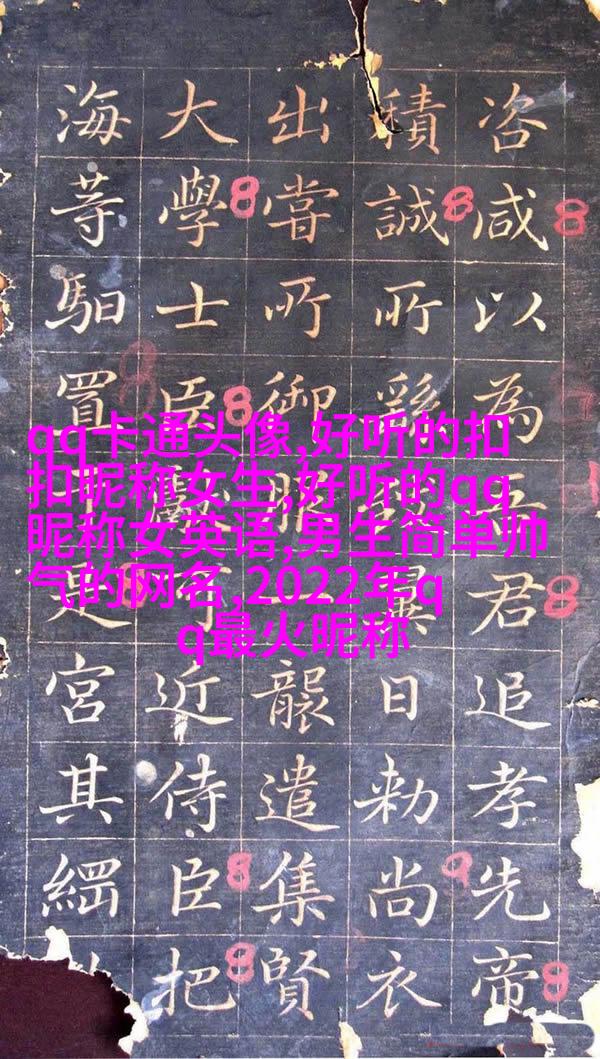 咨咸以為吾君追孝先帝
積誠所繇日勑尚衣
出甞所御服一襲遣集賢
大學士臣近侍臣把
海等馹置于是宮其
qq卡通头像,好听的扣
扣昵称女生,好听的qq
昵称女英语,男生简单帅
气的网名,2022年q
q最火昵称